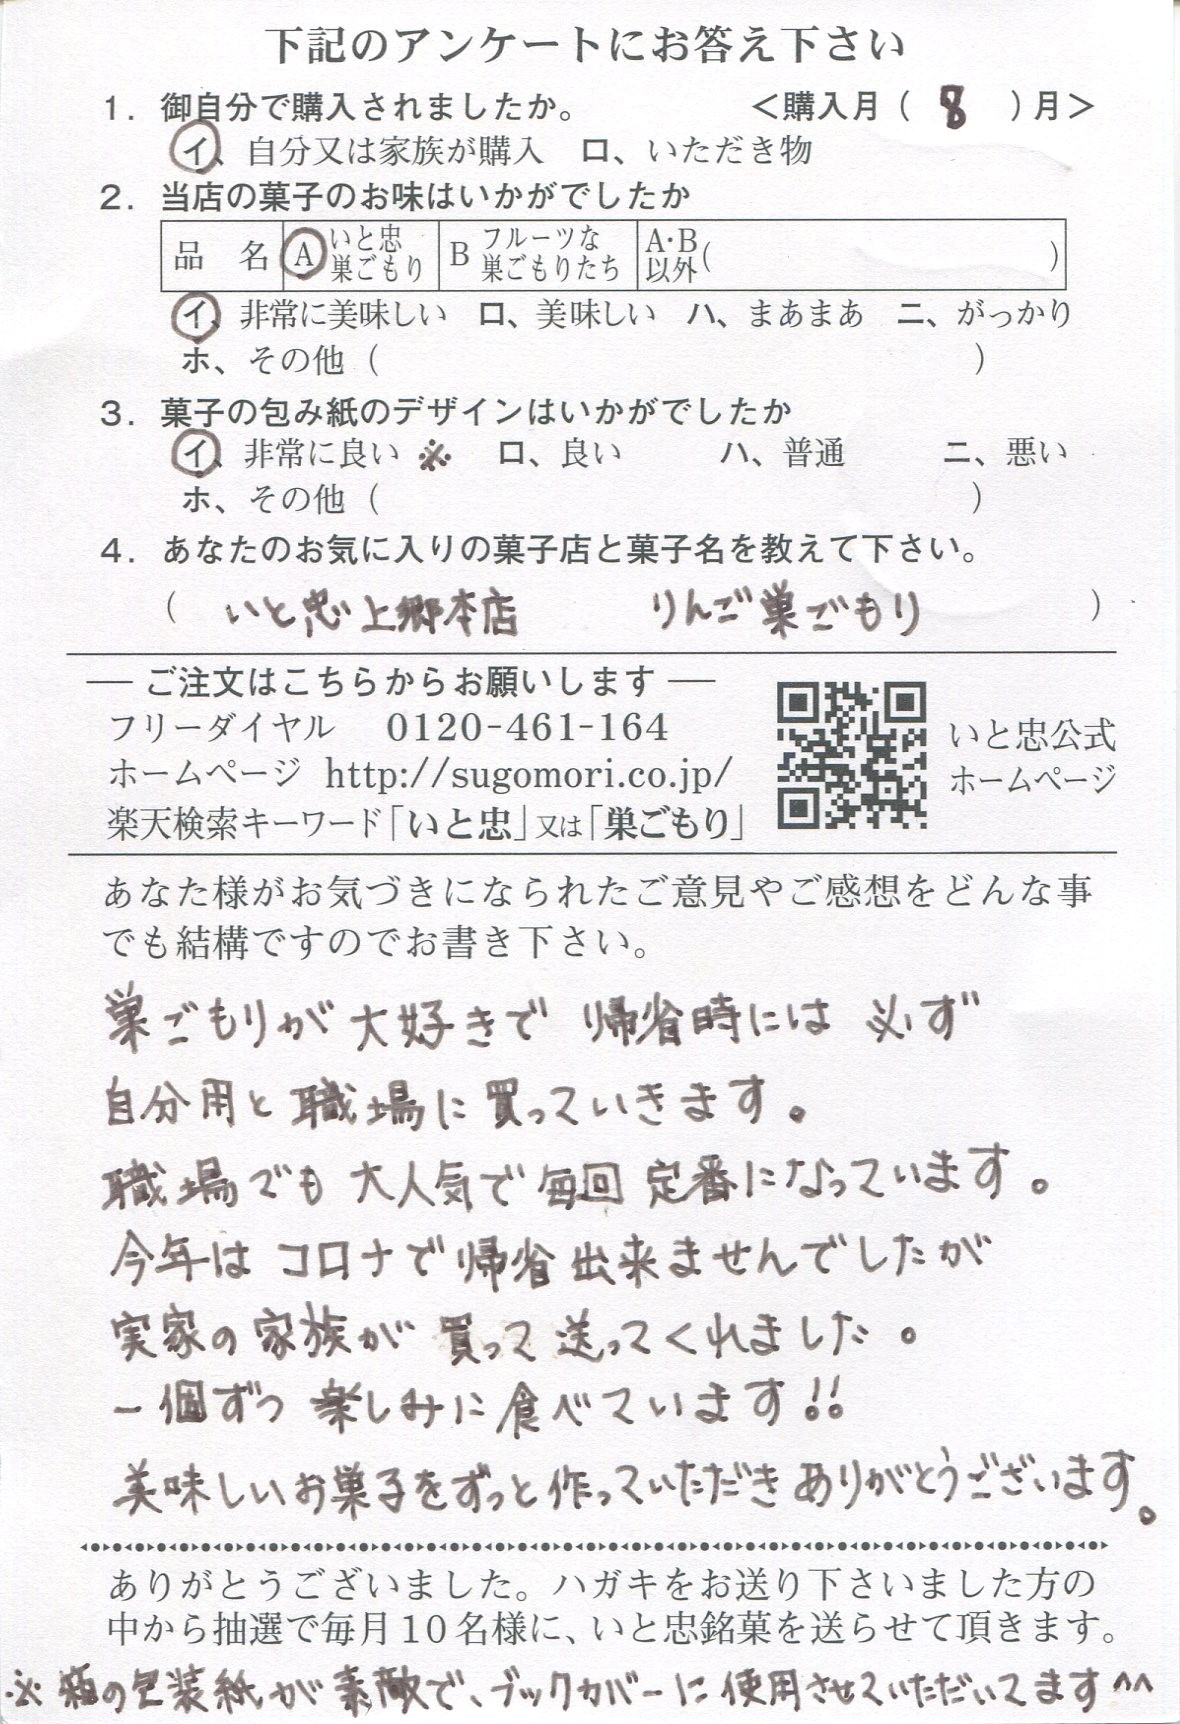 下記のアンケートにお答え下さい
1. 御自分で購入されましたか。 ＜購入月（ 8 ）月＞
イ、自分又は家族が購入 ロ、いただき物
2. 当店の菓子のお味はいかがでしたか
品 名 A いと忠巣ごもり B フルーツな巣ごもりたち A・B以外（ ）
イ、非常に美味しい ロ、美味しい ハ、まあまあ ニ、がっかり
ホ、その他（ ）
3. 菓子の包み紙のデザインはいかがでしたか
イ、非常に良い ※ ロ、良い ハ、普通 ニ、悪い
ホ、その他（ ）
4. あなたのお気に入りの菓子店と菓子名を教えて下さい。
（ いと忠上郷本店 りんご巣ごもり ）
― ご注文はこちらからお願いします ―
フリーダイヤル 0120-461-164
ホームページ http://sugomori.co.jp/
楽天検索キーワード「いと忠」又は「巣ごもり」
いと忠公式
ホームページ
あなた様がお気づきになられたご意見やご感想をどんな事
でも結構ですのでお書き下さい。
巣ごもりが大好きで 帰省時には 必ず
自分用と 職場に 買っていきます。
職場でも 大人気で 毎回 定番になっています。
今年は コロナで 帰省 出来ませんでしたが
実家の 家族が 買って 送ってくれました。
一個ずつ 楽しみに 食べています!!
美味しいお菓子をずっと作っていただき ありがとうございます。
ありがとうございました。ハガキをお送り下さいました方の
中から抽選で毎月10名様に、いと忠銘菓を送らせて頂きます。
※ 箱の包装紙が素敵で、ブックカバーに使用させていただいてます^^